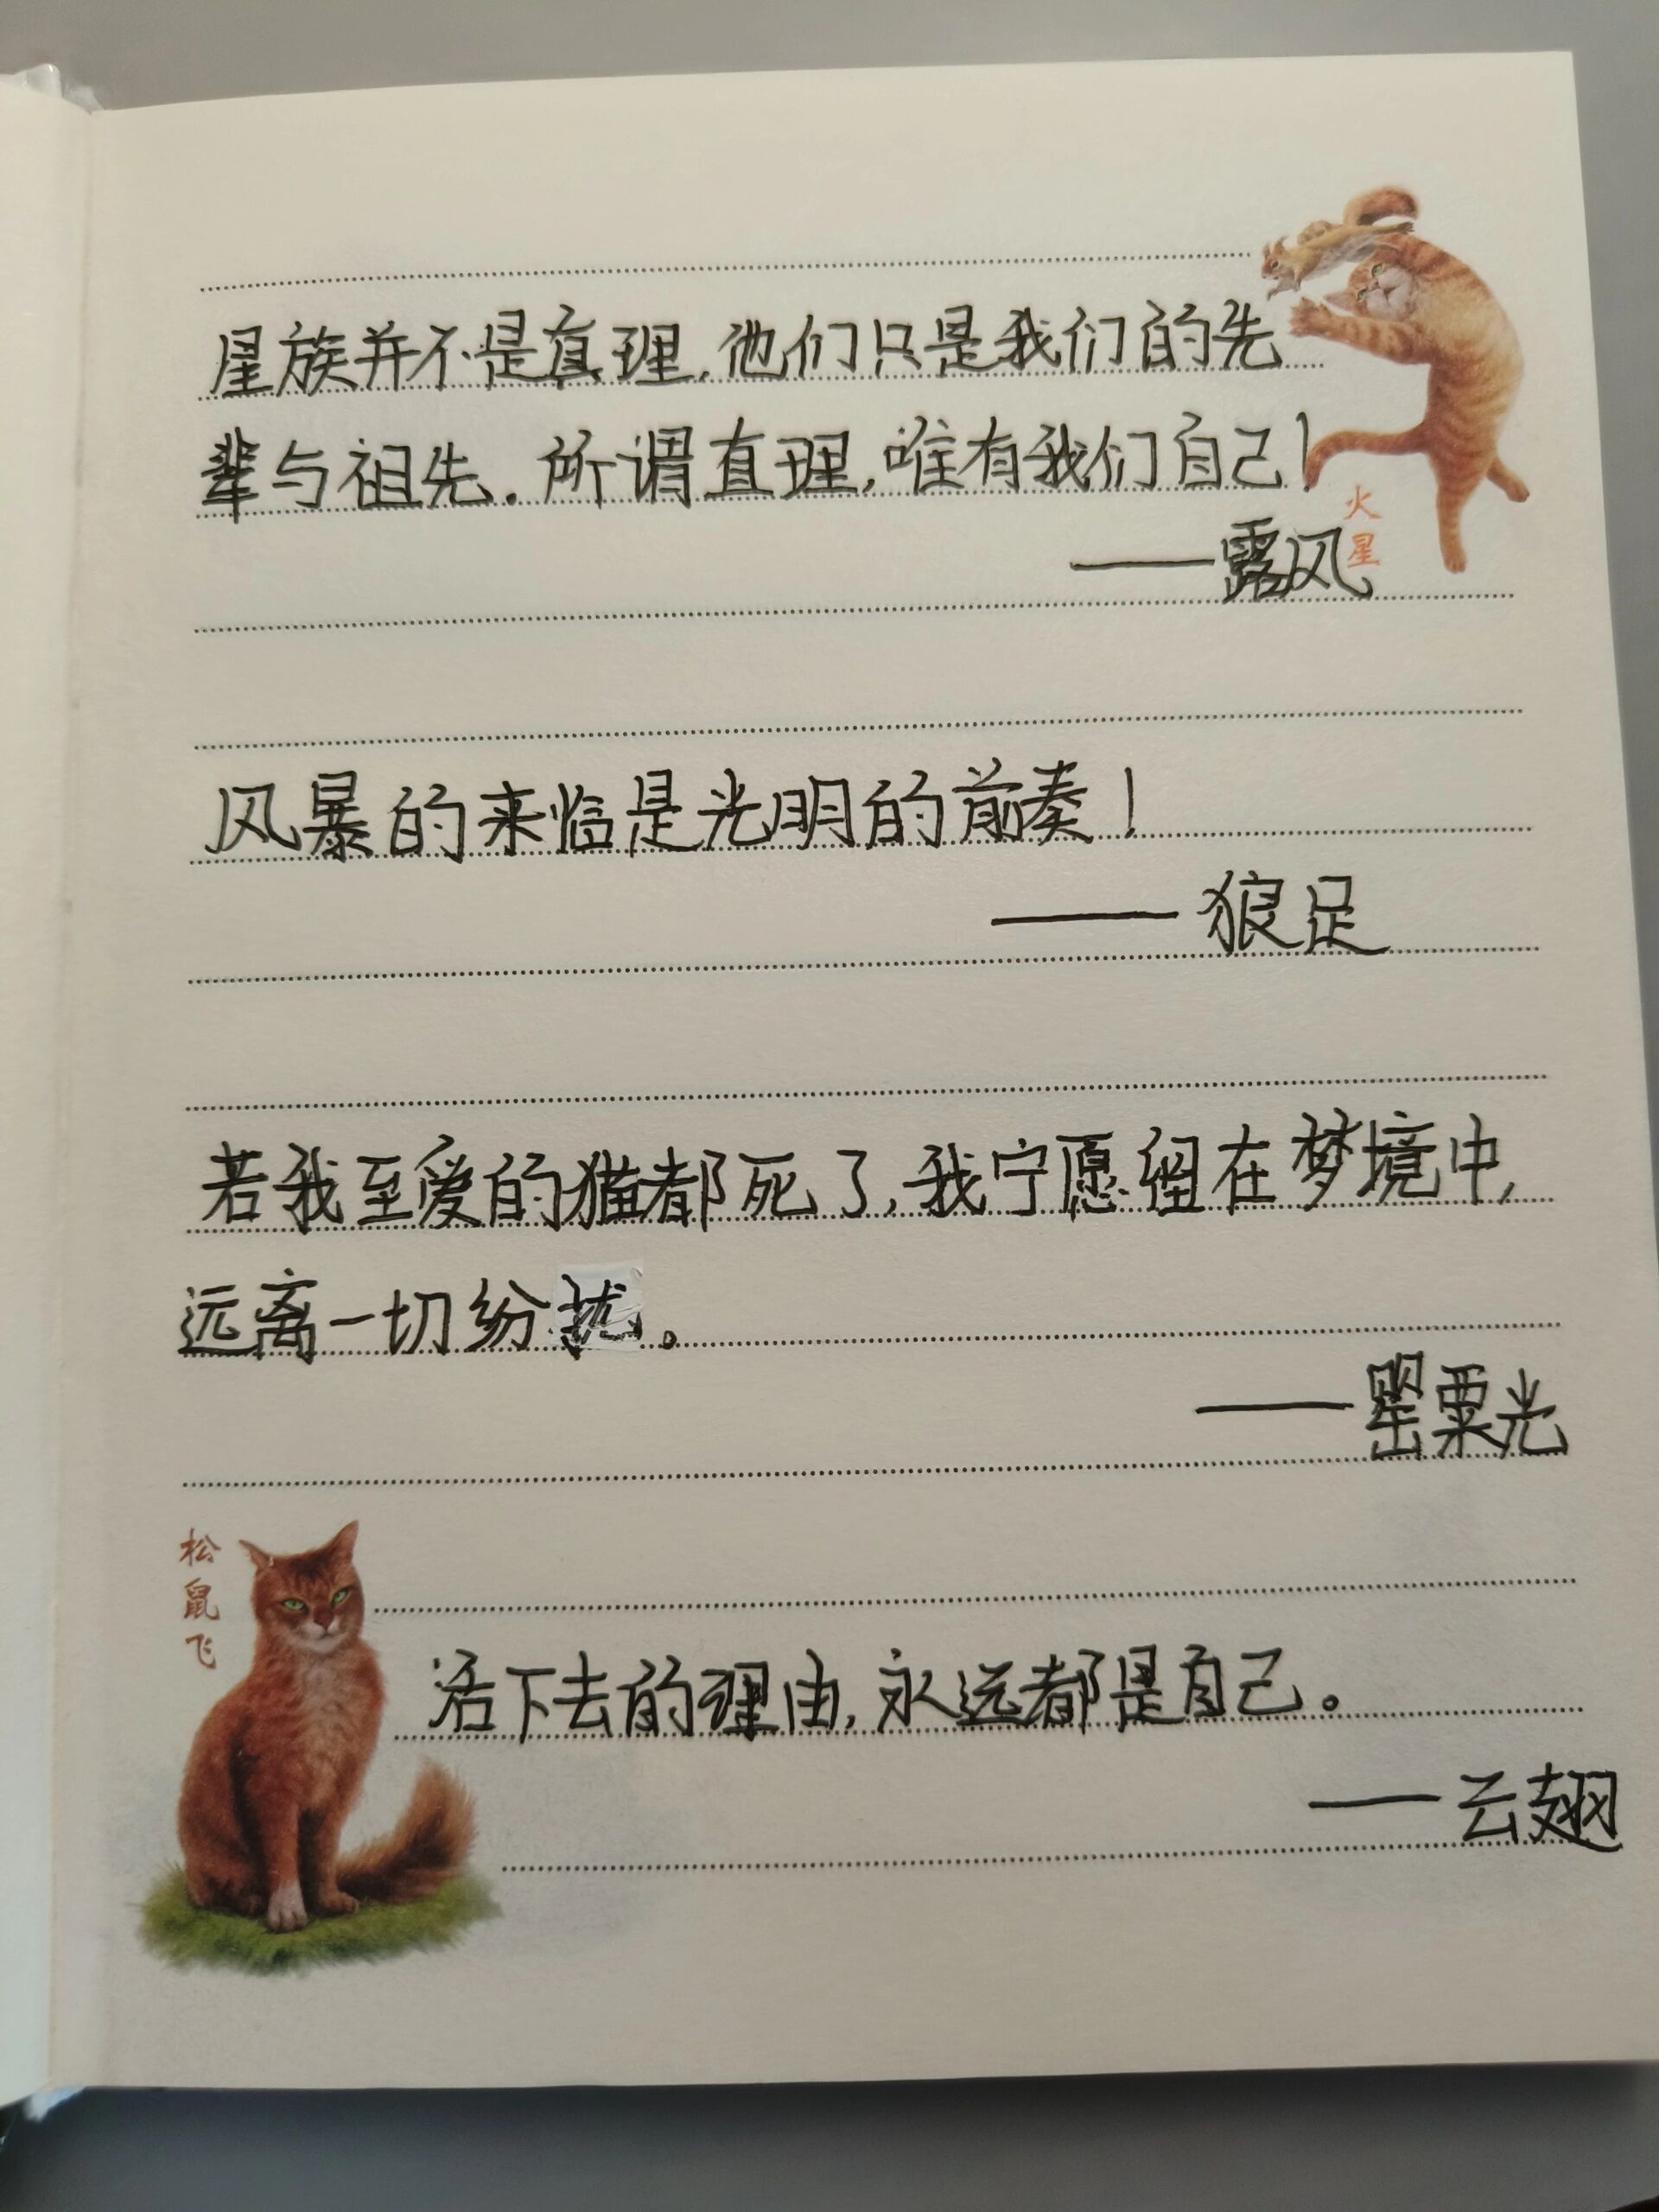 星族并不是真理,他们只是我们的先
辈与祖先.所谓真理,唯有我们自己!
火星
——露风
风暴的来临是光明的前奏!
——狼足
若我至爱的猫都死了,我宁愿留在梦境中,
远离一切纷扰。
——罂粟光
松鼠飞
活下去的理由,永远都是自己。
——云翅